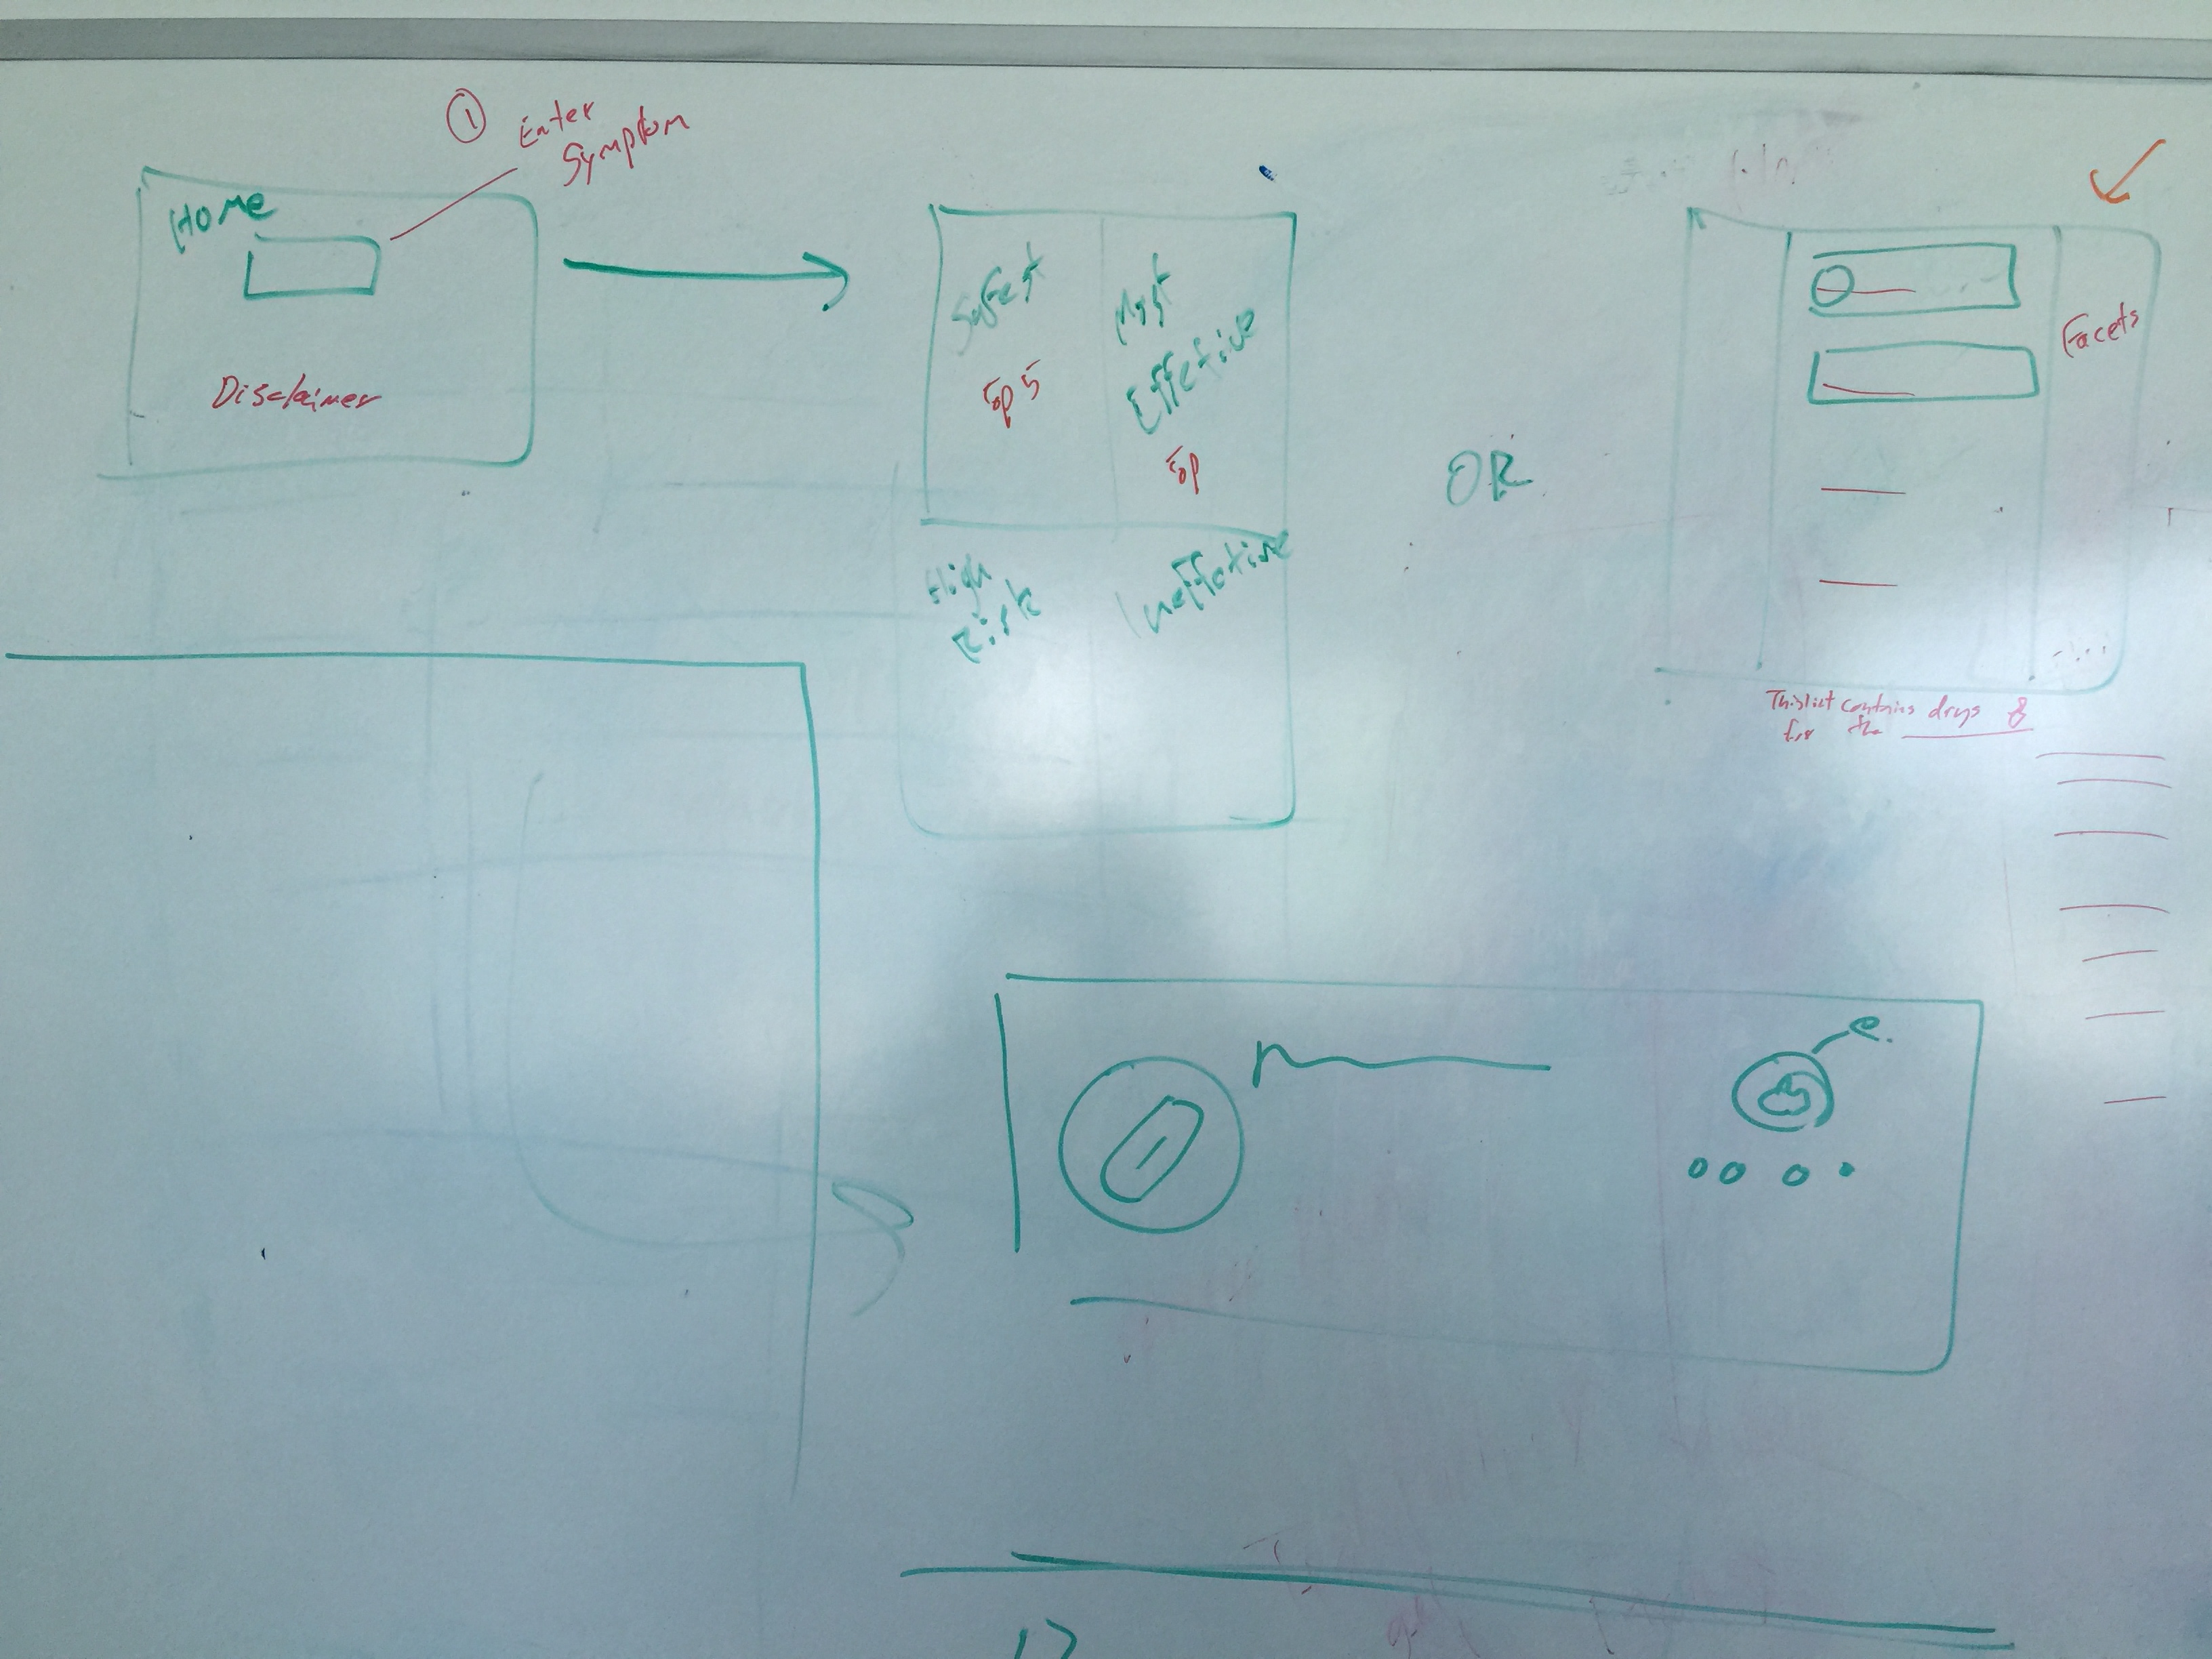 ① Enter
Symptom
Home
Disclaimer
Safest
Top 5
Most
Effective
Top
High
Risk
Ineffective
OR
Facets
This list contains drugs
for the